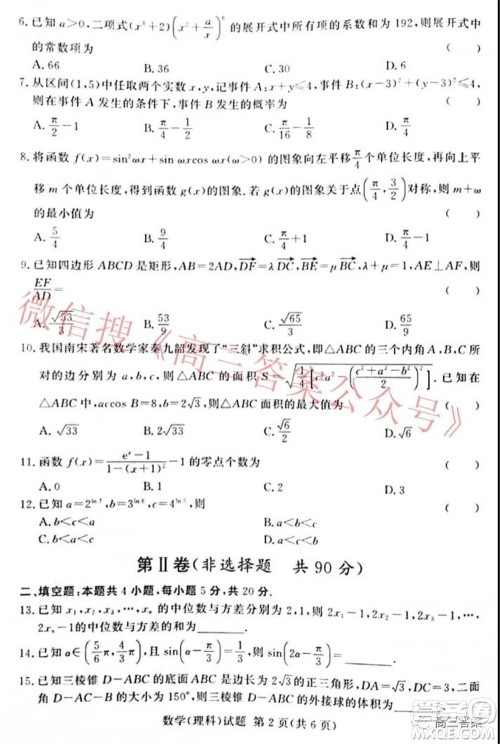 6. 已知 a>0, 二项式(x³+2)(x²+a/x)⁶的展开式中所有项的系数和为 192, 则展开式中
的常数项为 ( )
A. 66 B. 36 C. 30 D. 6
7. 从区间(1,5)中任取两个实数 x,y, 记事件 A:x+y≤4, 事件 B:(x-3)²+(y-1)²≤4,
则在事件 A 发生的条件下, 事件 B 发生的概率为 ( )
A. π/2 B. π/4-1 C. π/16-1/8 D. π/4
8. 将函数 f(x)=sin²ωx+sin ωxcos ωx(ω>0) 的图象向左平移π/4个单位长度, 再向上平
移 m 个单位长度, 得到函数 g(x)的图象. 若 g(x)的图象关于点(π/4,3/2)对称, 则 m+ω
的最小值为 ( )
A. 5/4 B. 9/4 C. π/4+1 D. π/4-1
9. 已知四边形 ABCD 是矩形, AB=2AD, DF=λDC, BE=μBC, λ+μ=1, 则
EF/AD= ( )
A. √53/3 B. 53/9 C. √65/3 D. 65/9
10. 我国南宋著名数学家秦九韶发现了“三斜”求积公式, 即△ABC 的三个内角 A,B,C 所
对的边分别为 a,b,c, 则△ABC 的面积 S=√(1/4[c²a²-((c²+a²-b²)/2)²]). 已知在
△ABC 中, accos B=8, b=2√3, 则△ABC 面积的最大值为 ( )
A. √33 B. 2√33 C. √6/2 D. √6
11. 函数 f(x)=(eˣ-1)/(1-(x+1)²)-1 的零点个数为 ( )
A. 0 B. 1 C. 2 D. 3
12. 已知 a=2^(ln 7), b=3^(ln 6), c=4^(ln 5), 则 ( )
A. b<c<a B. c<b<a C. b<a<c D. a<b<c
第Ⅱ卷(非选择题 共 90 分)
二、填空题: 本题共 4 小题, 每小题 5 分, 共 20 分.
13. 已知 x₁,x₂,x₃,…,xₙ 的中位数与方差都是 2, 则 2x₁-1, 2x₂-1, 2x₃-1,…,
2xₙ-1的中位数与方差的和为________.
14. 已知 α∈(5π/6,4π/3), 且 sin(α-π/3)=1/3, 则 sin(2α-π/3)=________.
15. 已知三棱锥 D-ABC 的底面 ABC 是边长为 2√3的正三角形, DA=DB=2, 且二面角
D-AB-C 的大小为 150°, 则三棱锥 D-ABC 外接球的体积为________.
数学(理科)试题 第 2 页(共 6 页)
微信搜《高三答案公众号》
高三答案